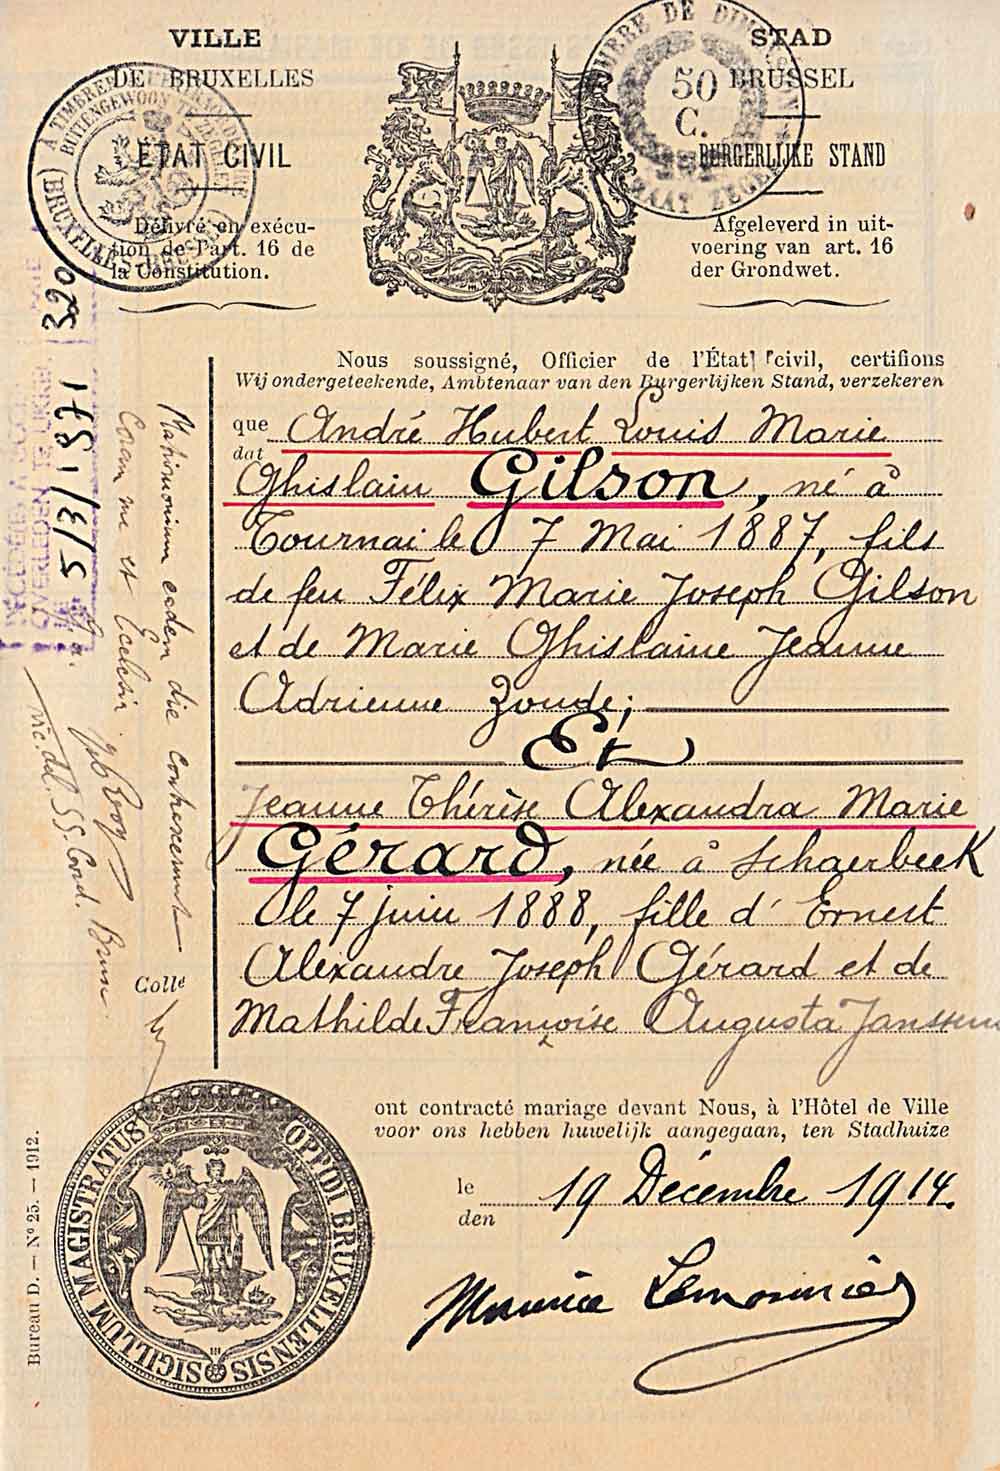 VILLE
DE BRUXELLES
ÉTAT CIVIL
Délivré en exécu-
tion de l'art. 16 de
la Constitution.
STAD
BRUSSEL
BURGERLIJKE STAND
Afgeleverd in uit-
voering van art. 16
der Grondwet.
50
C.
Nous soussigné, Officier de l'État civil, certifions
Wij ondergeteekende, Ambtenaar van den Burgerlijken Stand, verzekeren
que André Hubert Louis Marie
dat
Ghislain Gilson, né à
Tournai le 7 Mai 1887, fils
de feu Félix Marie Joseph Gilson
et de Marie Ghislaine Jeanne
Adrienne Zoude;
Et
Jeanne Thérèse Alexandra Marie
Gérard, née à Schaerbeek
le 7 juin 1888, fille d'Ernest
Alexandre Joseph Gérard et de
Mathilde Françoise Augusta Janssens
ont contracté mariage devant Nous, à l'Hôtel de Ville
voor ons hebben huwelijk aangegaan, ten Stadhuize
le 19 Décembre 1914.
den
Maurice Lemonnier
SIGILLUM MAGISTRATUS OPPIDI BRUXELLENSIS
Collé
Matrimonium eadem die contraxerunt
Coram me et Eccles
vic. dec. SS. Cord. Brux.
DECEDE(E) A UCCLE
OVERLEDEN TE UKKEL
5/3/1971
320
Bureau D. — N° 25. — 1912.